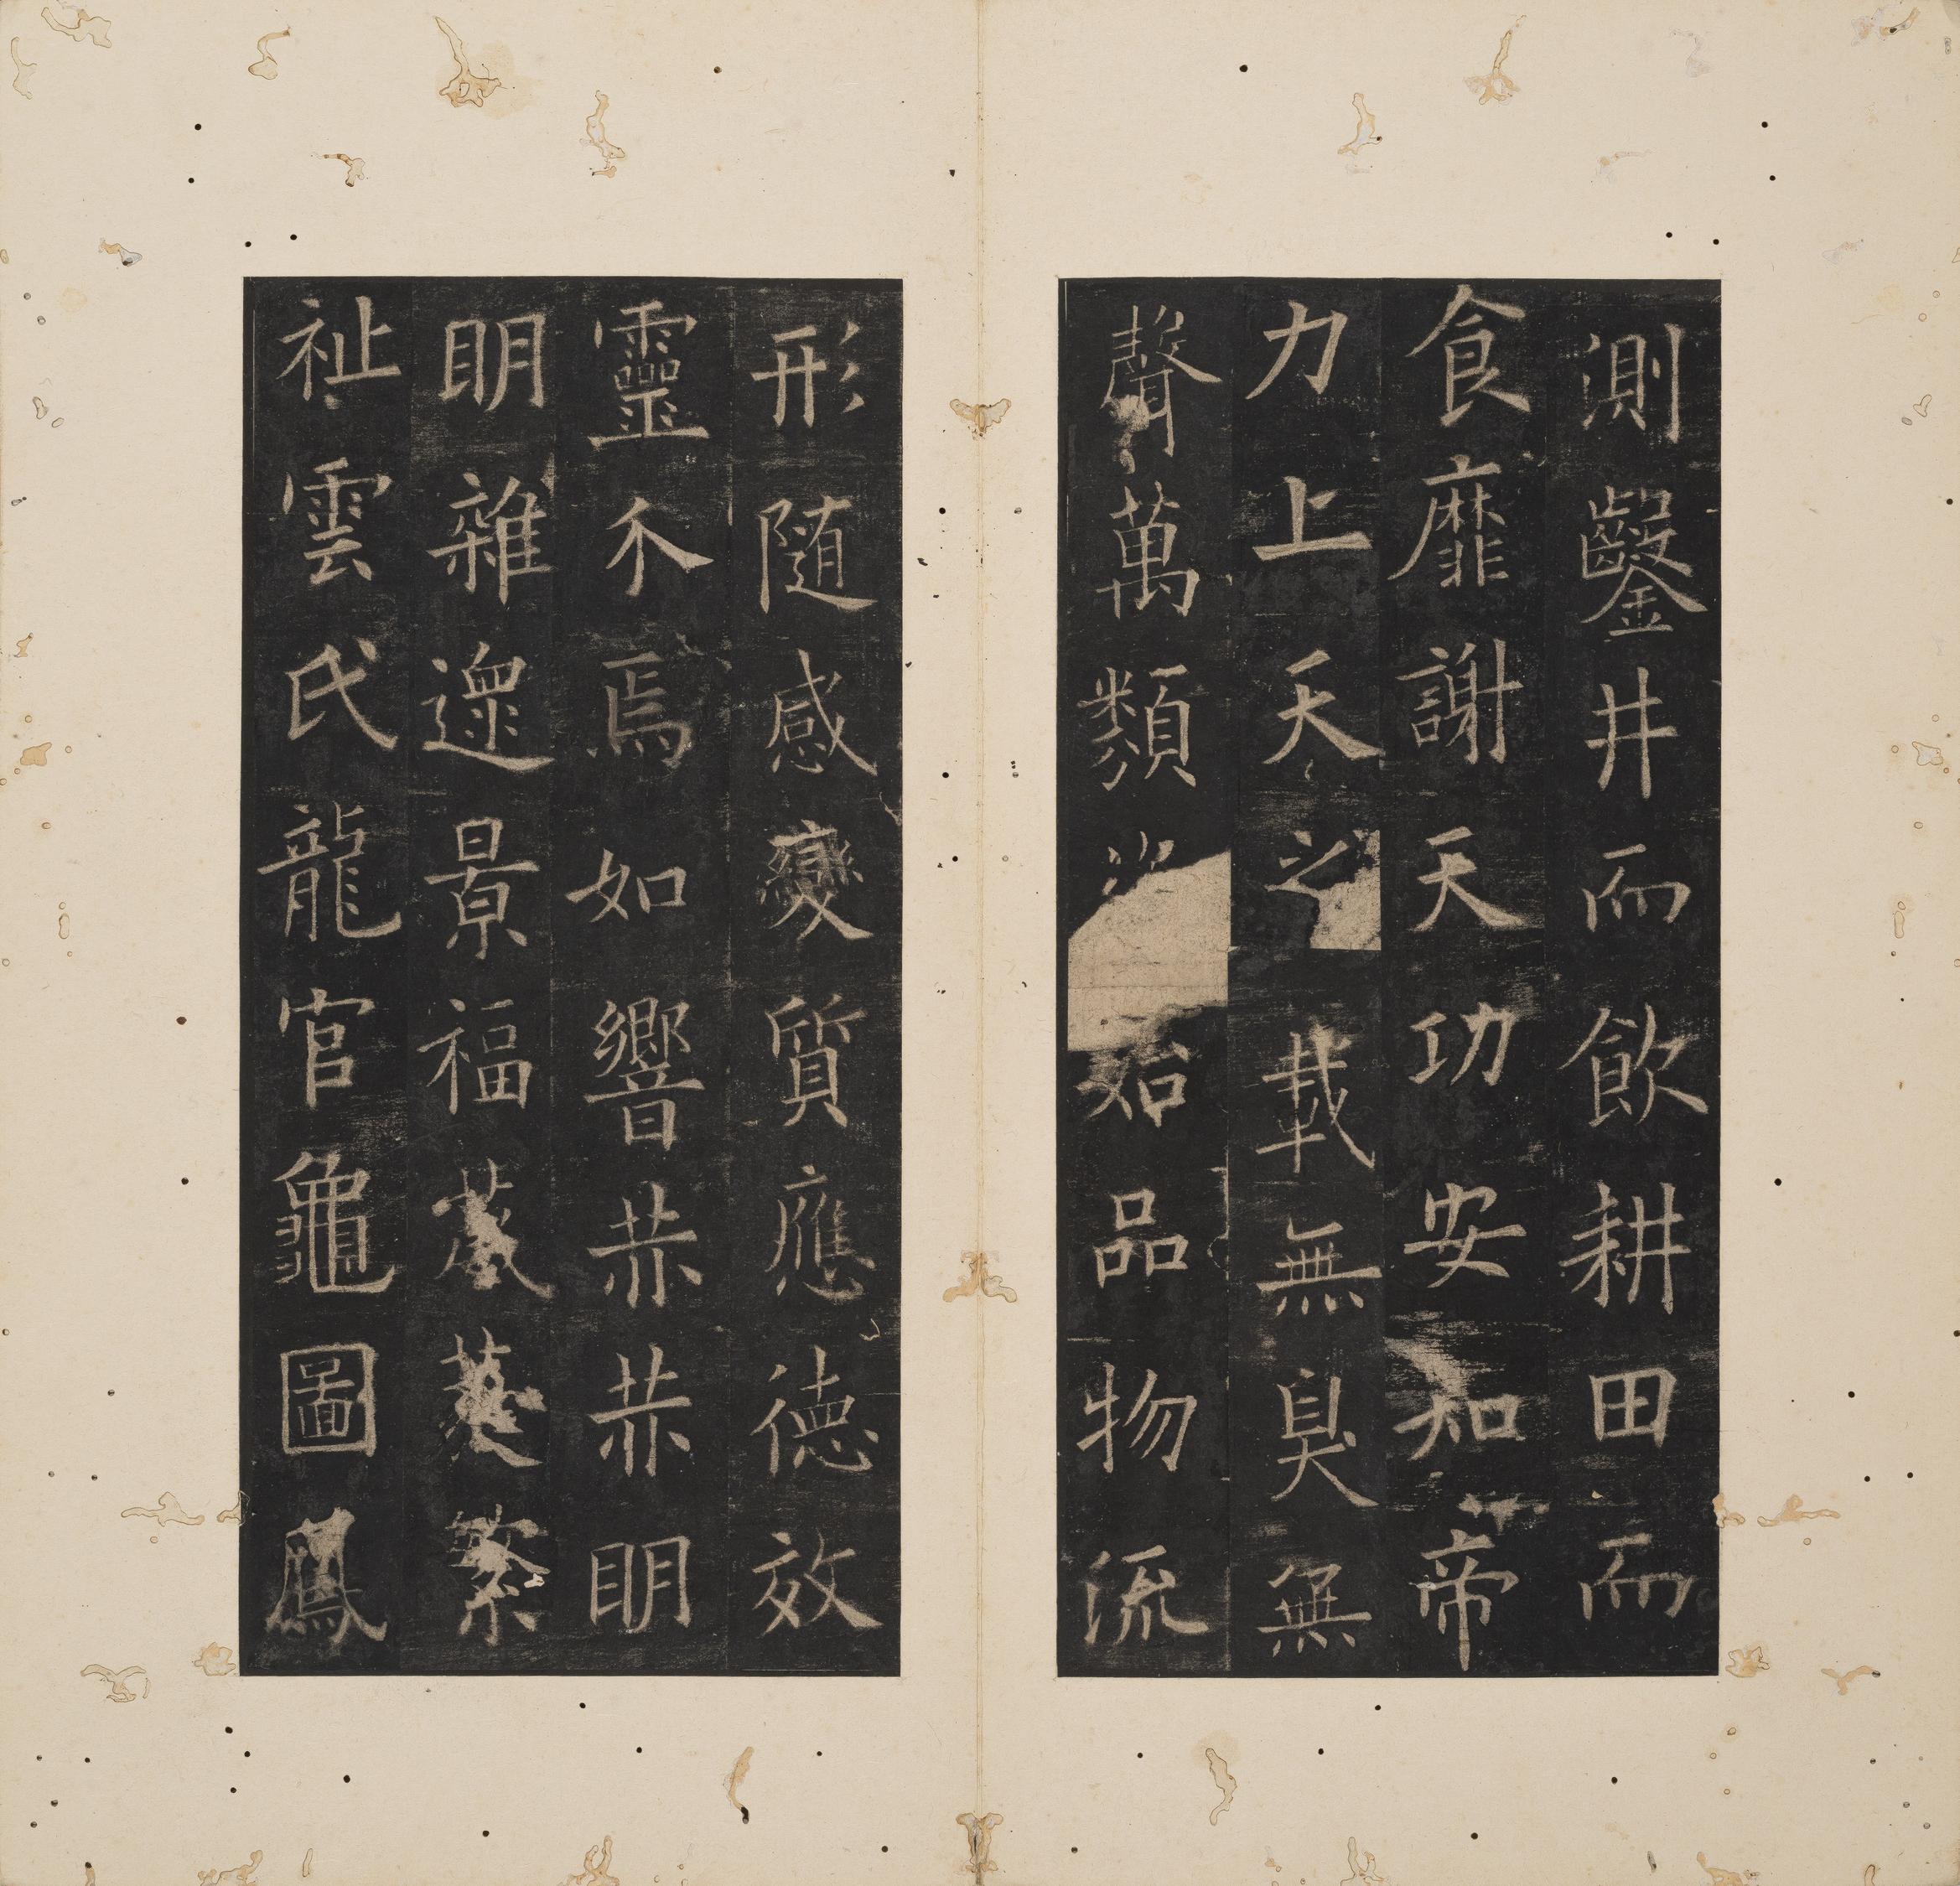 測鑿井而飲耕田而
食靡謝天功安知帝
力上天之載無臭無
聲萬類 始品物流
形随感變質應德效
靈介焉如響赫赫明
明雜遝景福葳蕤繁
祉雲氏龍官龜圖鳳